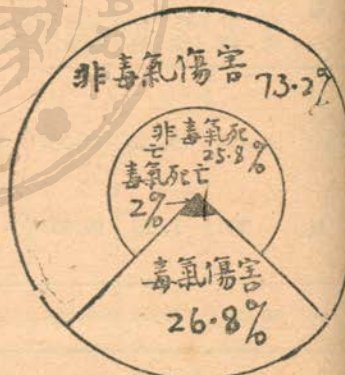 非毒氣傷害 73.2%
非毒氣死
亡 25.8%
毒氣死亡
2%
毒氣傷害
26.8%